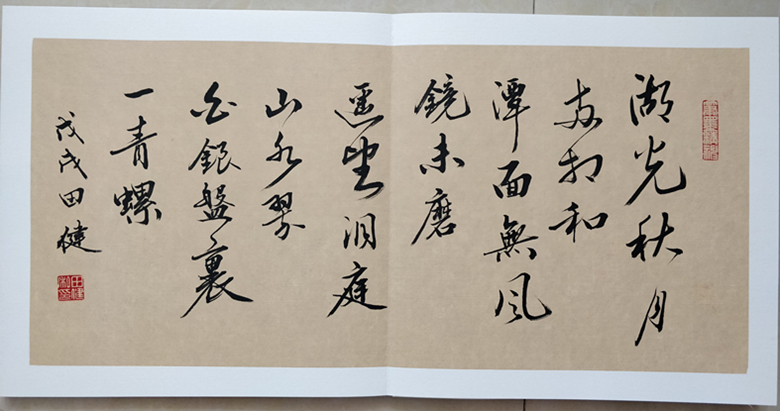 湖光秋月
两相和
潭面無風
鏡未磨
遥望洞庭
山水翠
白銀盤裏
一青螺
戊戌田健